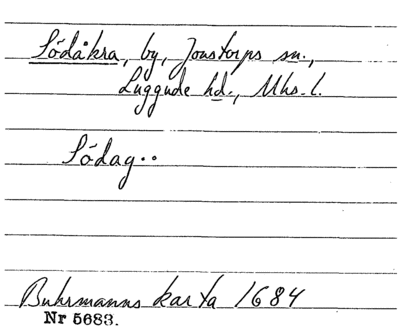 Södåkra, by, Jonstorps sn.,
Luggude hd., Mhs. l.
Södag..
Buhrmanns karta 1684
Nr 5683.